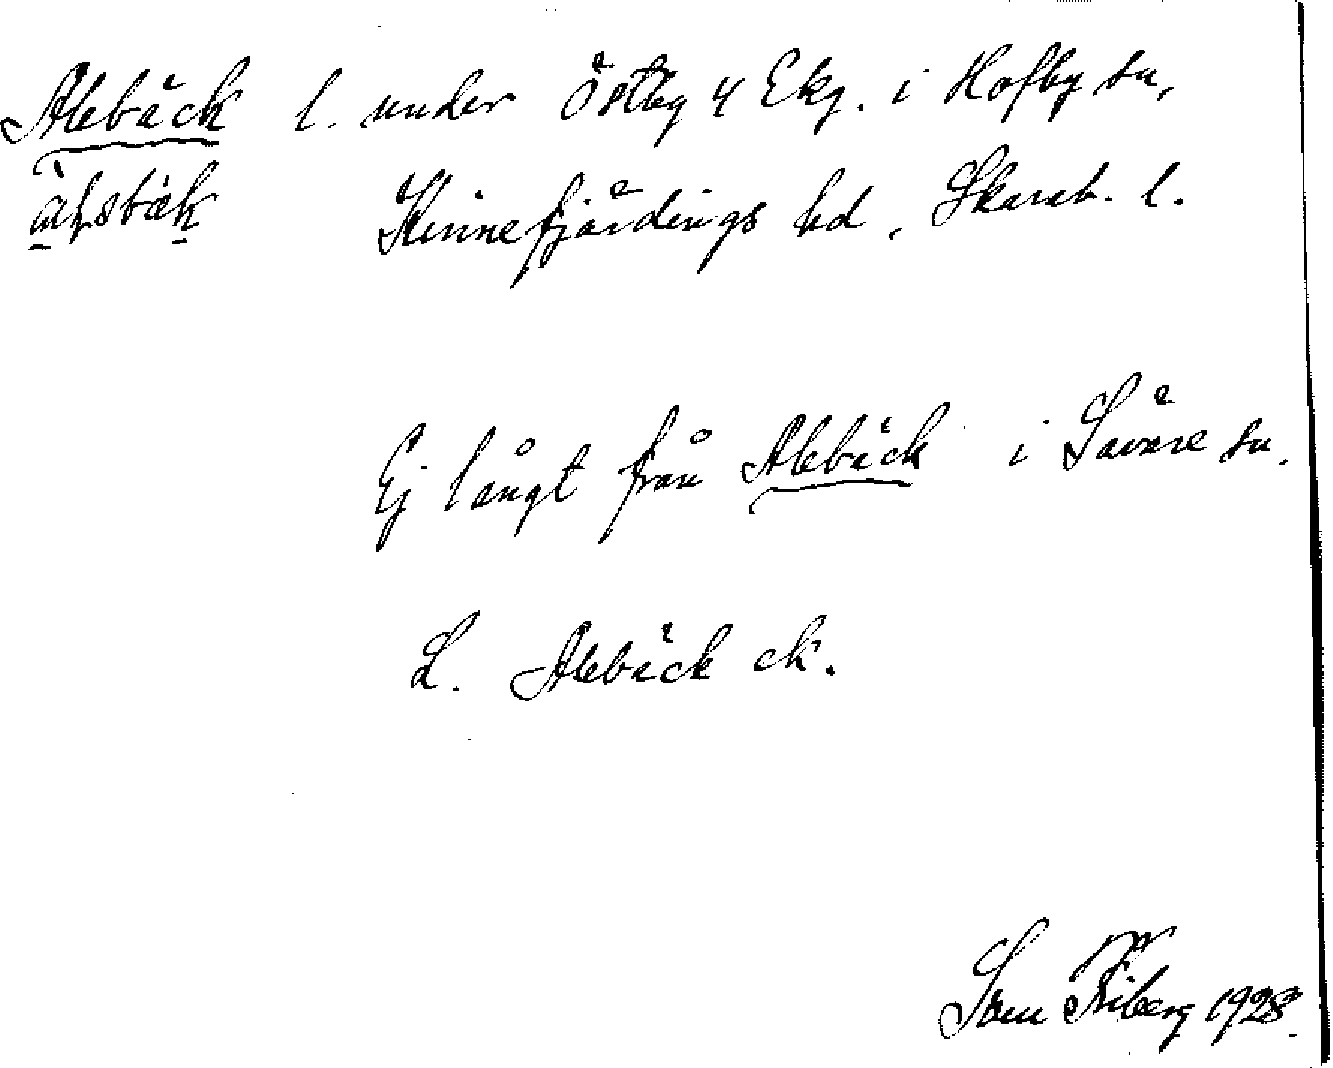 Alebäck l. under Östby 4 Ekg. i Hofby sn,
Kinnefjärdings hd, Skarab. l.
Ej långt från Alebäck i Såvare sn.
L. Alebäck ek.
Sam Friberg 1928.